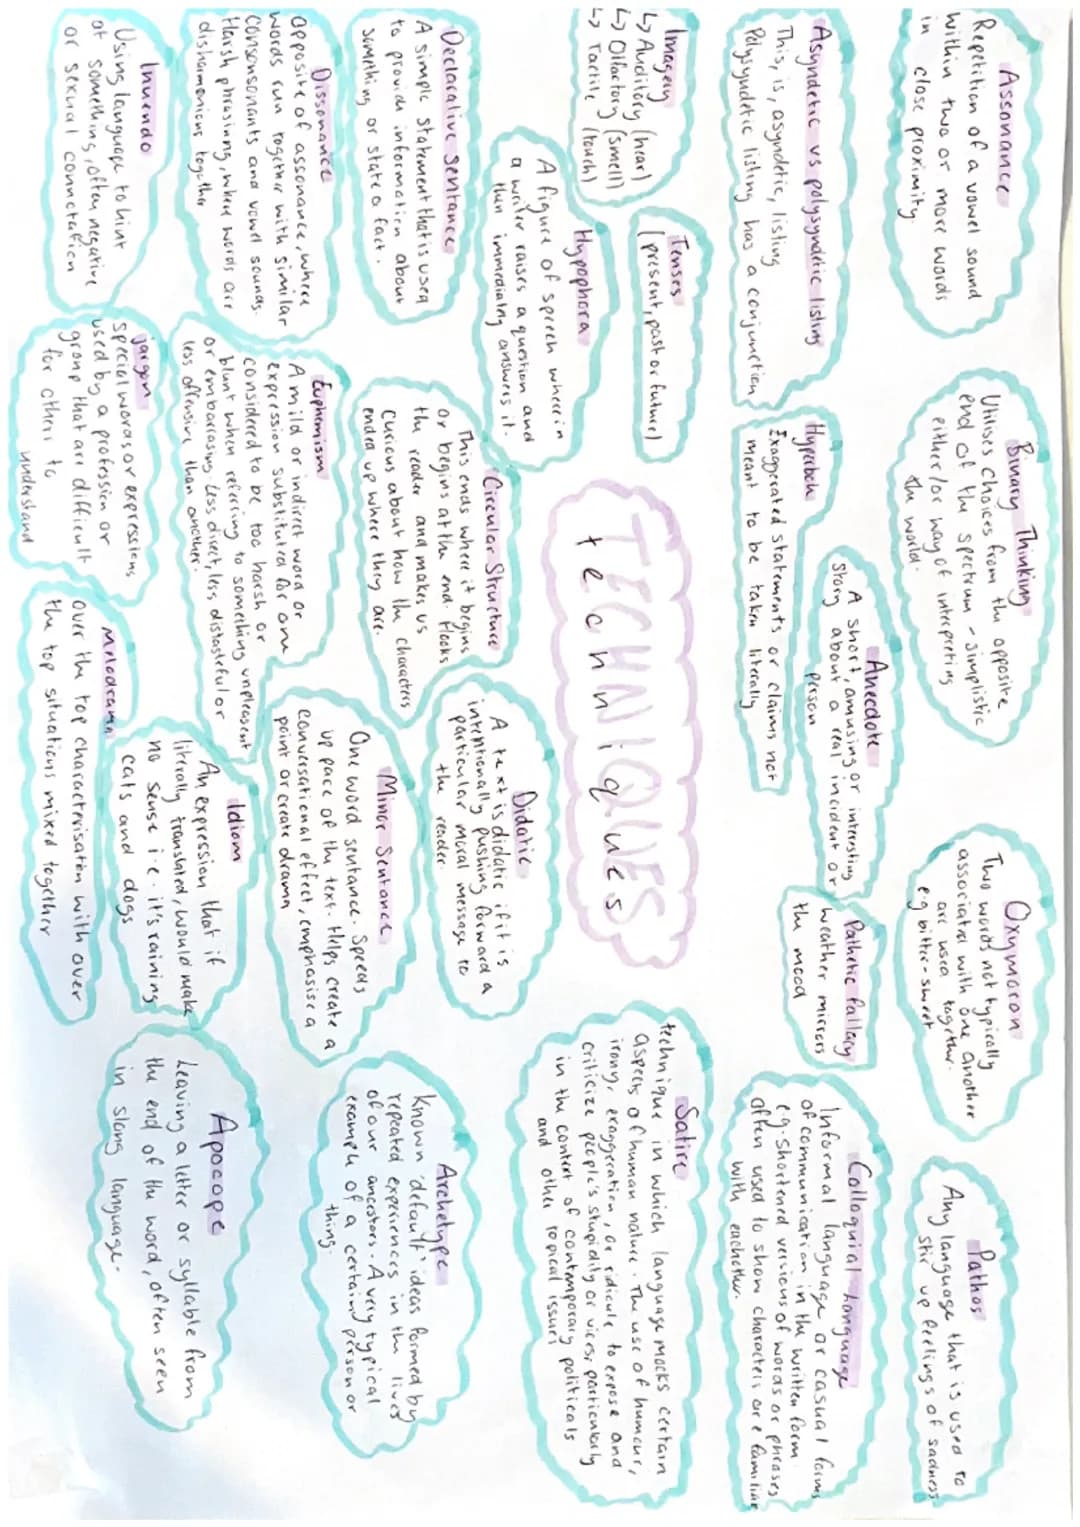 TECHNIQUES
techniques
Assonance
Repetition of a vowel sound
within two or more words
in close proximity.
Binary Thinking
Utilises choices from the opposite
end of the spectrum - simplistic
either/or way of interpreting
the world.
Oxymoron
Two words not typically
associated with one another
are used together.
eg bitter-sweet
Pathos
Any language that is used to
stir up feelings of sadness
Asyndetic vs polysyndetic listing
This, is, asyndetic, listing
Polysyndetic listing has a conjunction
Hyperbole
Exaggerated statements or claims not
meant to be taken literally
Anecdote
A short, amusing or interesting
story about a real incident or
person
Pathetic fallacy
weather mirrors
the mood
Colloquial language
Informal language or casual forms
of communication in the written form
e.g. shortened versions of words or phrases
often used to show characters are familiar
with eachother.
Imagery
↳ Auditory (hear)
↳ Olfactory (smell)
↳ Tactile (touch)
Tenses
(present, past or future)
Hypophora
A figure of speech wherein
a writer raises a question and
then immediately answers it.
Satire
technique in which language mocks certain
aspects of human nature. The use of humour,
irony, exaggeration, or ridicule to expose and
criticize people's stupidity or vices, particularly
in the context of contemporary politicals
and other topical issues
Declarative sentance
A simple statement that is used
to provide information about
something or state a fact.
Circular Structure
This ends where it begins
or begins at the end. Hooks
the reader and makes us
curious about how the characters
ended up where they are.
Didatic
A text is didatic if it is
intentionally pushing forward a
particular moral message to
the reader.
Dissonance
Opposite of assonance, where
words run together with similar
consonants and vowel sounds.
Harsh phrasing, where words are
disharmonious together
Euphemism
A mild or indirect word or
expression substituted for one
considered to be too harsh or
blunt when referring to something unpleasent
or embarassing. Less direct, less distasteful or
less offensive than another.
Minor Sentance
One word sentance. Speeds
up pace of the text. Helps create a
conversational effect, emphasise a
point or create drama
Archetype
Known 'default' ideas formed by
repeated experiences in the lives
of our ancestors. A very typical
example of a certainy person or
thing.
Innuendo
Using language to hint
at something, often negative
or sexual connotation
jargon
special words or expressions
used by a profession or
group that are difficult
for others to
understand
Idiom
An expression that if
literally translated, would make
no sense i.e. it's raining
cats and dogs
Melodrama
over the top characterisation with over
the top situations mixed together
Apocope
Leaving a letter or syllable from
the end of the word, often seen
in slang language.